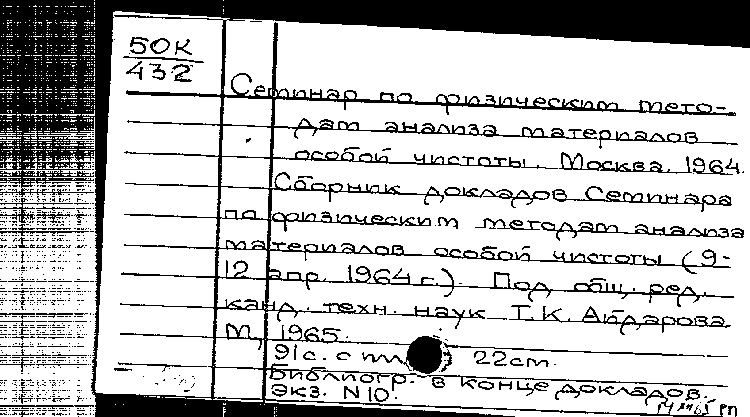 50К
432
Семинар по физическим мето-
дам анализа материалов
особой чистоты. Москва. 1964.
Сборник докладов Семинара
по физическим методам анализа
материалов особой чистоты (9-
12 апр. 1964 г.). Под общ. ред.
канд. техн. наук Т.К. Айдарова
М, 1965.
91 с. с 22 см.
Библиогр. в конце докладов.
Экз. N10.